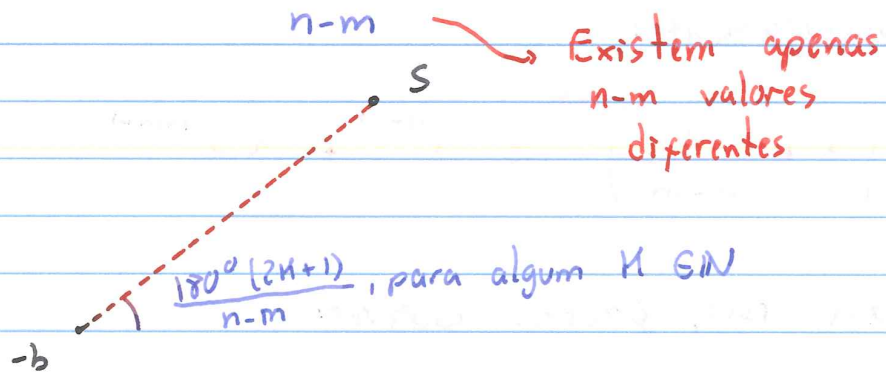 n-m
Existem apenas
n-m valores
diferentes
S
180° (2K+1)
n-m
, para algum K ∈ ℕ
-b